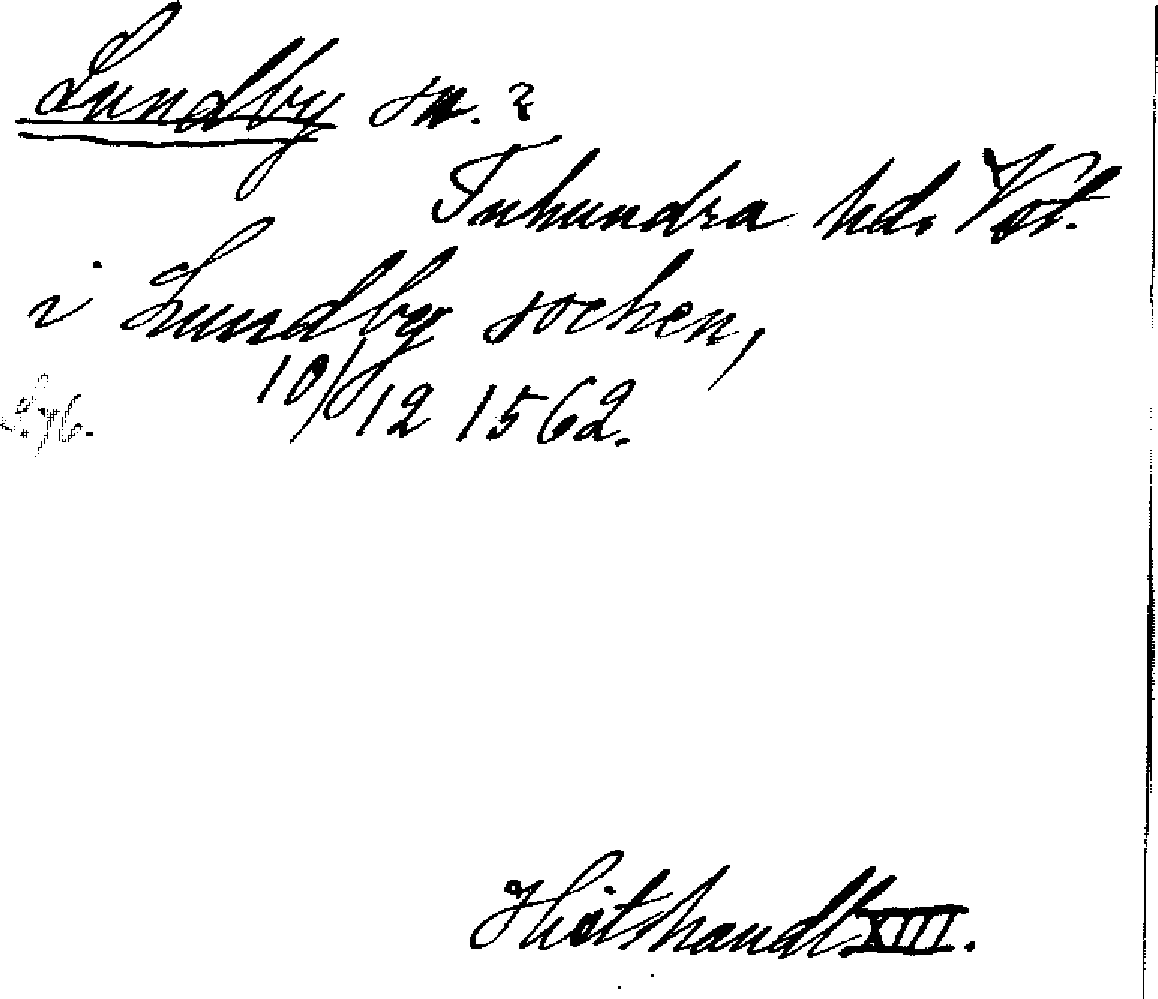 Lundby sn. ?
Tuhundra hd. Vstm.
i Lundby sochen,
10/12 1562.
Hist handl XIII.